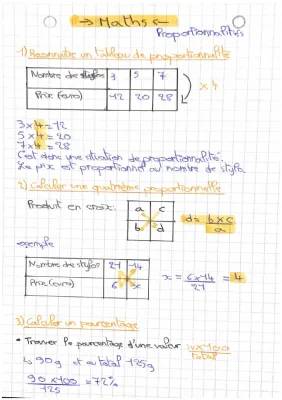 → Maths ←
Proportionnalités
1) Reconnaitre un tableau de proportionnalité
Nombre de stylos 3 5 7
Prix (euro) 12 20 28
x 4
3 x 4 = 12
5 x 4 = 20
7 x 4 = 28
C'est donc une situation de proportionnalité.
Le prix est proportionnel au nombre de stylo
2) Calculer une quatrième proportionnelle
Produit en croix:
a c
b d
d = b x c / a
exemple
Nombre de stylos 21 14
Prix (euro) 6 x
x = 6 x 14 / 21 = 4
3) Calculer un pourcentage
• Trouver le pourcentage d'une valeur
x 100 / total
↳ 90g et au total 125g
90 x 100 / 125 = 72%